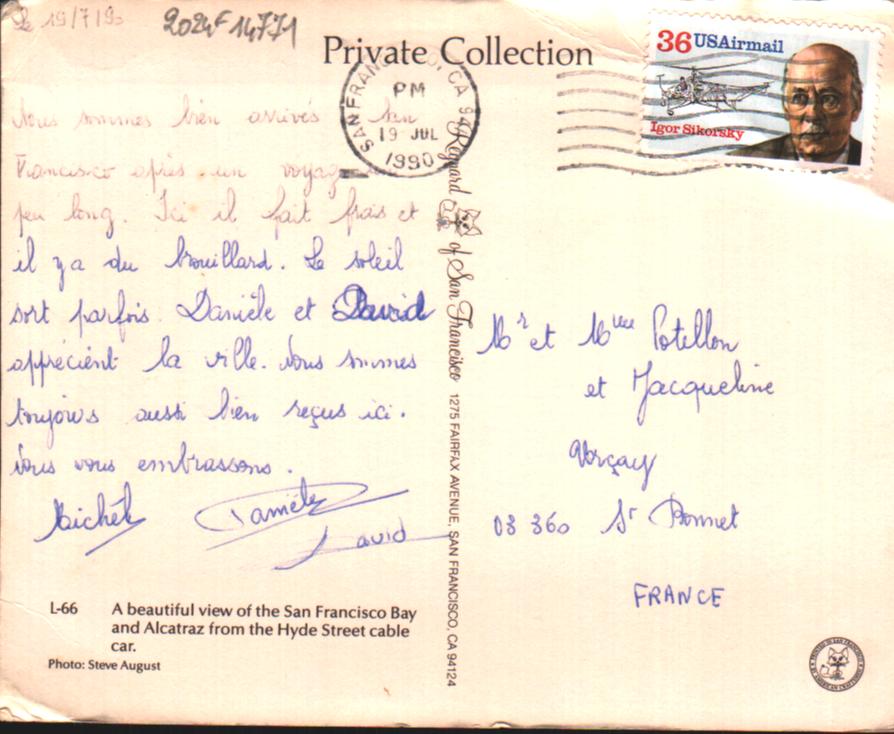 Le 19/7/90
2024F14771
Private Collection
36 USAirmail
Igor Sikorsky
SAN FRANCISCO, CA 94
PM
19 JUL
1990
Nous sommes bien arrivés à San
Francisco après un voyage un
peu long. Ici il fait frais et
il y a du brouillard. Le soleil
sort parfois. Danièle et David
apprécient la ville. Nous sommes
toujours aussi bien reçus ici.
Nous vous embrassons.
Michel Danièle
David
L-66 A beautiful view of the San Francisco Bay
and Alcatraz from the Hyde Street cable
car.
Photo: Steve August
of San Francisco 1275 FAIRFAX AVENUE, SAN FRANCISCO, CA 94124
Mr et Mme Potillon
et Jacqueline
Vorçay
03 360 St Bonnet
FRANCE